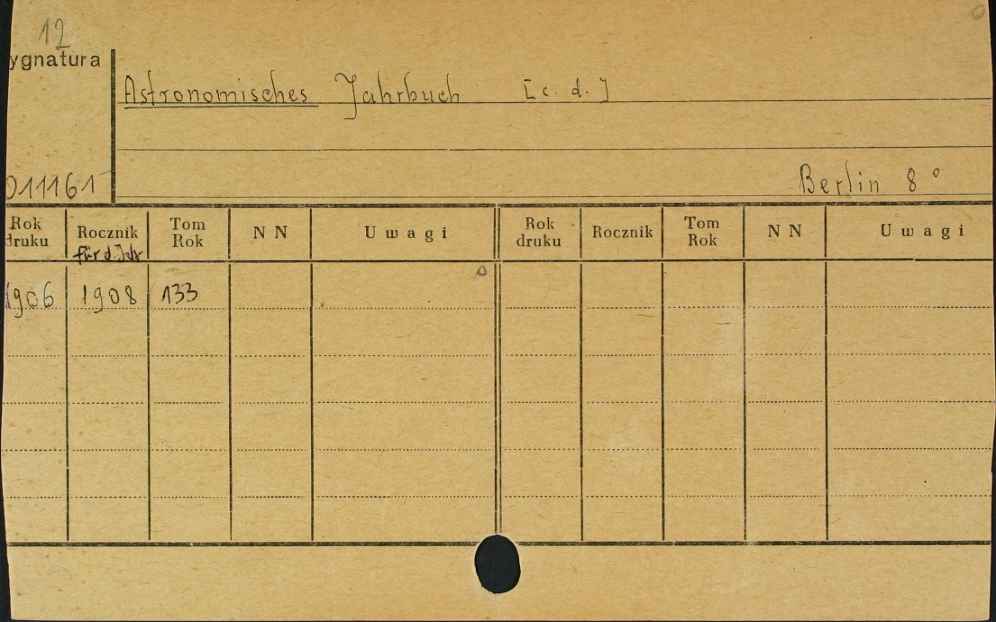 12
ygnatura
Astronomisches Jahrbuch [c. d.]
011161
Berlin 8°
Rok druku Rocznik für d. Jahr Tom Rok N N Uwagi Rok druku Rocznik Tom Rok N N Uwagi
1906 1908 133